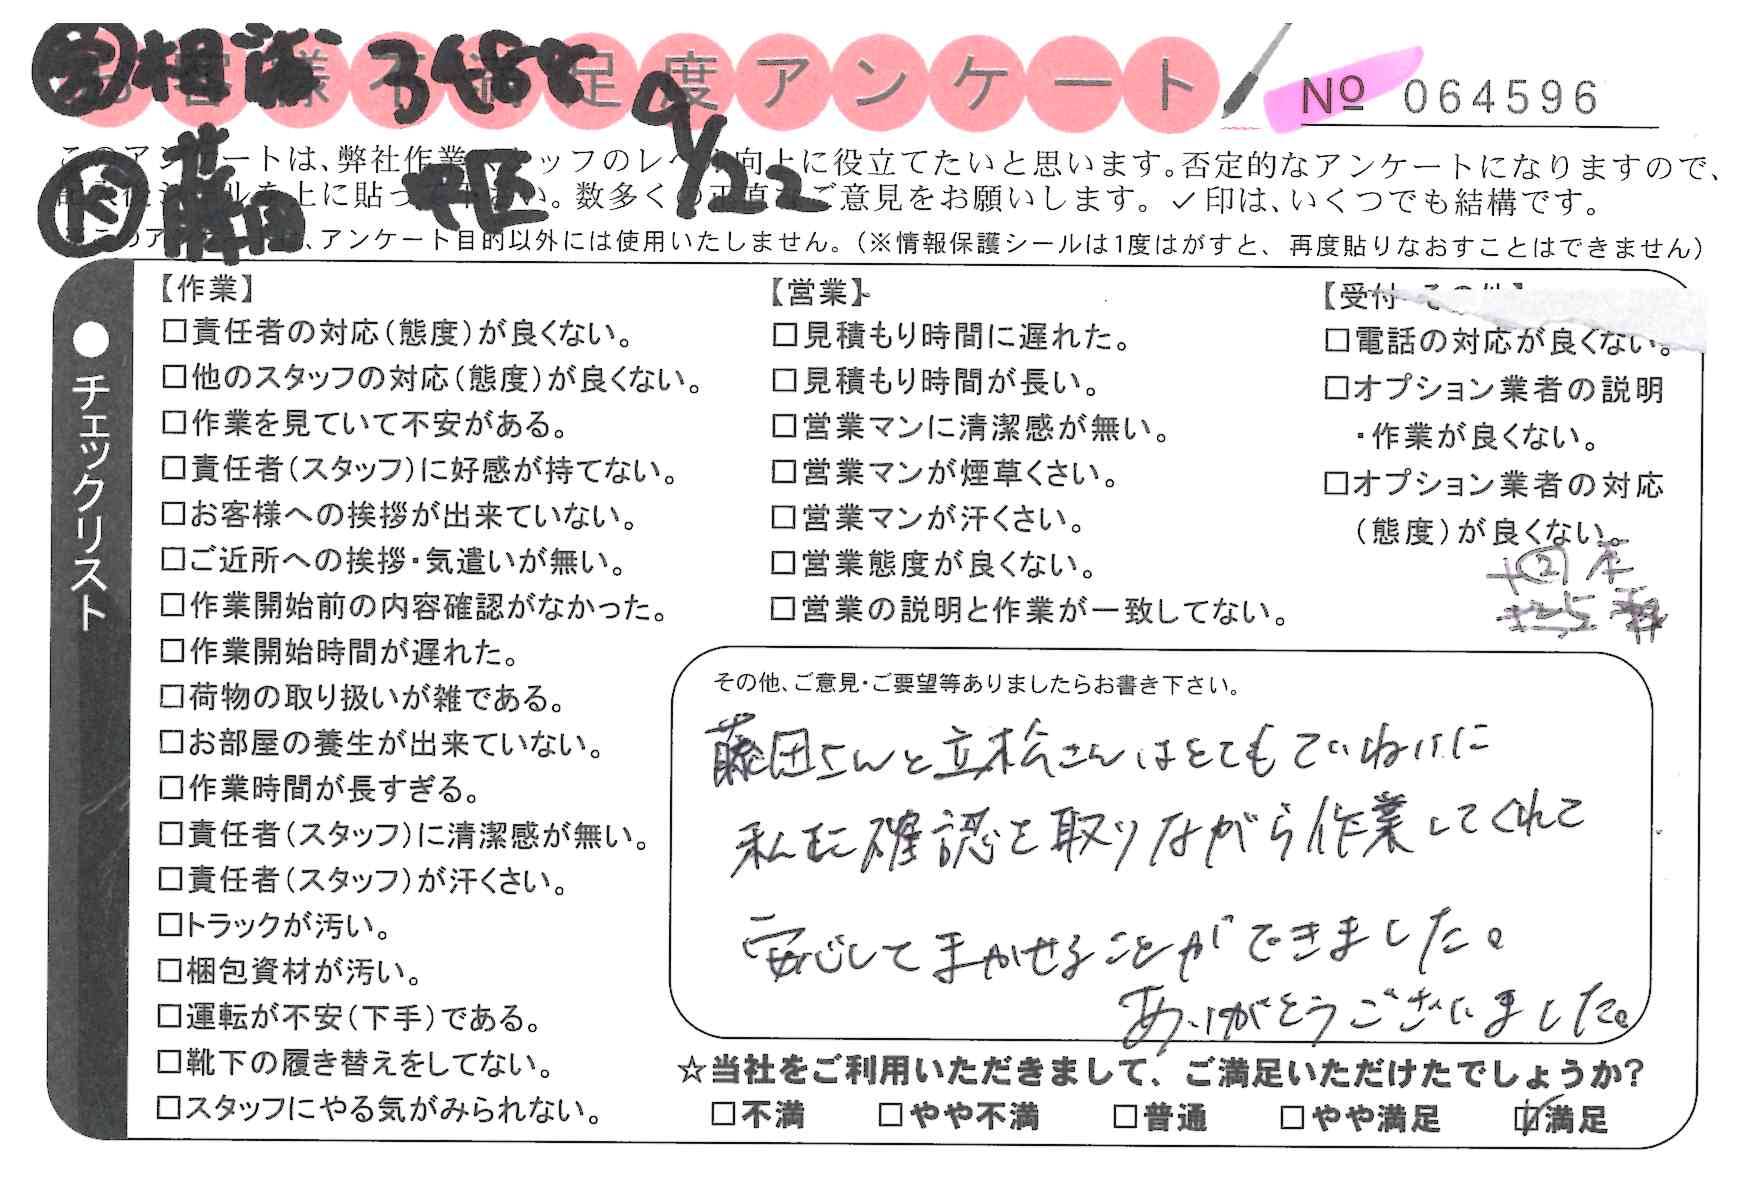 お客様不満足度アンケート
No 064596
相 3488
9/22
藤田
このアンケートは、弊社作業スタッフのレベル向上に役立てたいと思います。否定的なアンケートになりますので、
い。数多くの正直なご意見をお願いします。✓印は、いくつでも結構です。
、アンケート目的以外には使用いたしません。(※情報保護シールは1度はがすと、再度貼りなおすことはできません)
●チェックリスト
【作業】
□責任者の対応(態度)が良くない。
□他のスタッフの対応(態度)が良くない。
□作業を見ていて不安がある。
□責任者(スタッフ)に好感が持てない。
□お客様への挨拶が出来ていない。
□ご近所への挨拶・気遣いが無い。
□作業開始前の内容確認がなかった。
□作業開始時間が遅れた。
□荷物の取り扱いが雑である。
□お部屋の養生が出来ていない。
□作業時間が長すぎる。
□責任者(スタッフ)に清潔感が無い。
□責任者(スタッフ)が汗くさい。
□トラックが汚い。
□梱包資材が汚い。
□運転が不安(下手)である。
□靴下の履き替えをしてない。
□スタッフにやる気がみられない。
【営業】
□見積もり時間に遅れた。
□見積もり時間が長い。
□営業マンに清潔感が無い。
□営業マンが煙草くさい。
□営業マンが汗くさい。
□営業態度が良くない。
□営業の説明と作業が一致してない。
【受付・その他】
□電話の対応が良くない。
□オプション業者の説明
・作業が良くない。
□オプション業者の対応
(態度)が良くない。
その他、ご意見・ご要望等ありましたらお書き下さい。
藤田さんと立松さんはとてもていねいに
私に確認を取りながら作業してくれて
安心してまかせることができました。
ありがとうございました。
☆当社をご利用いただきまして、ご満足いただけたでしょうか?
□不満 □やや不満 □普通 □やや満足 ☑満足